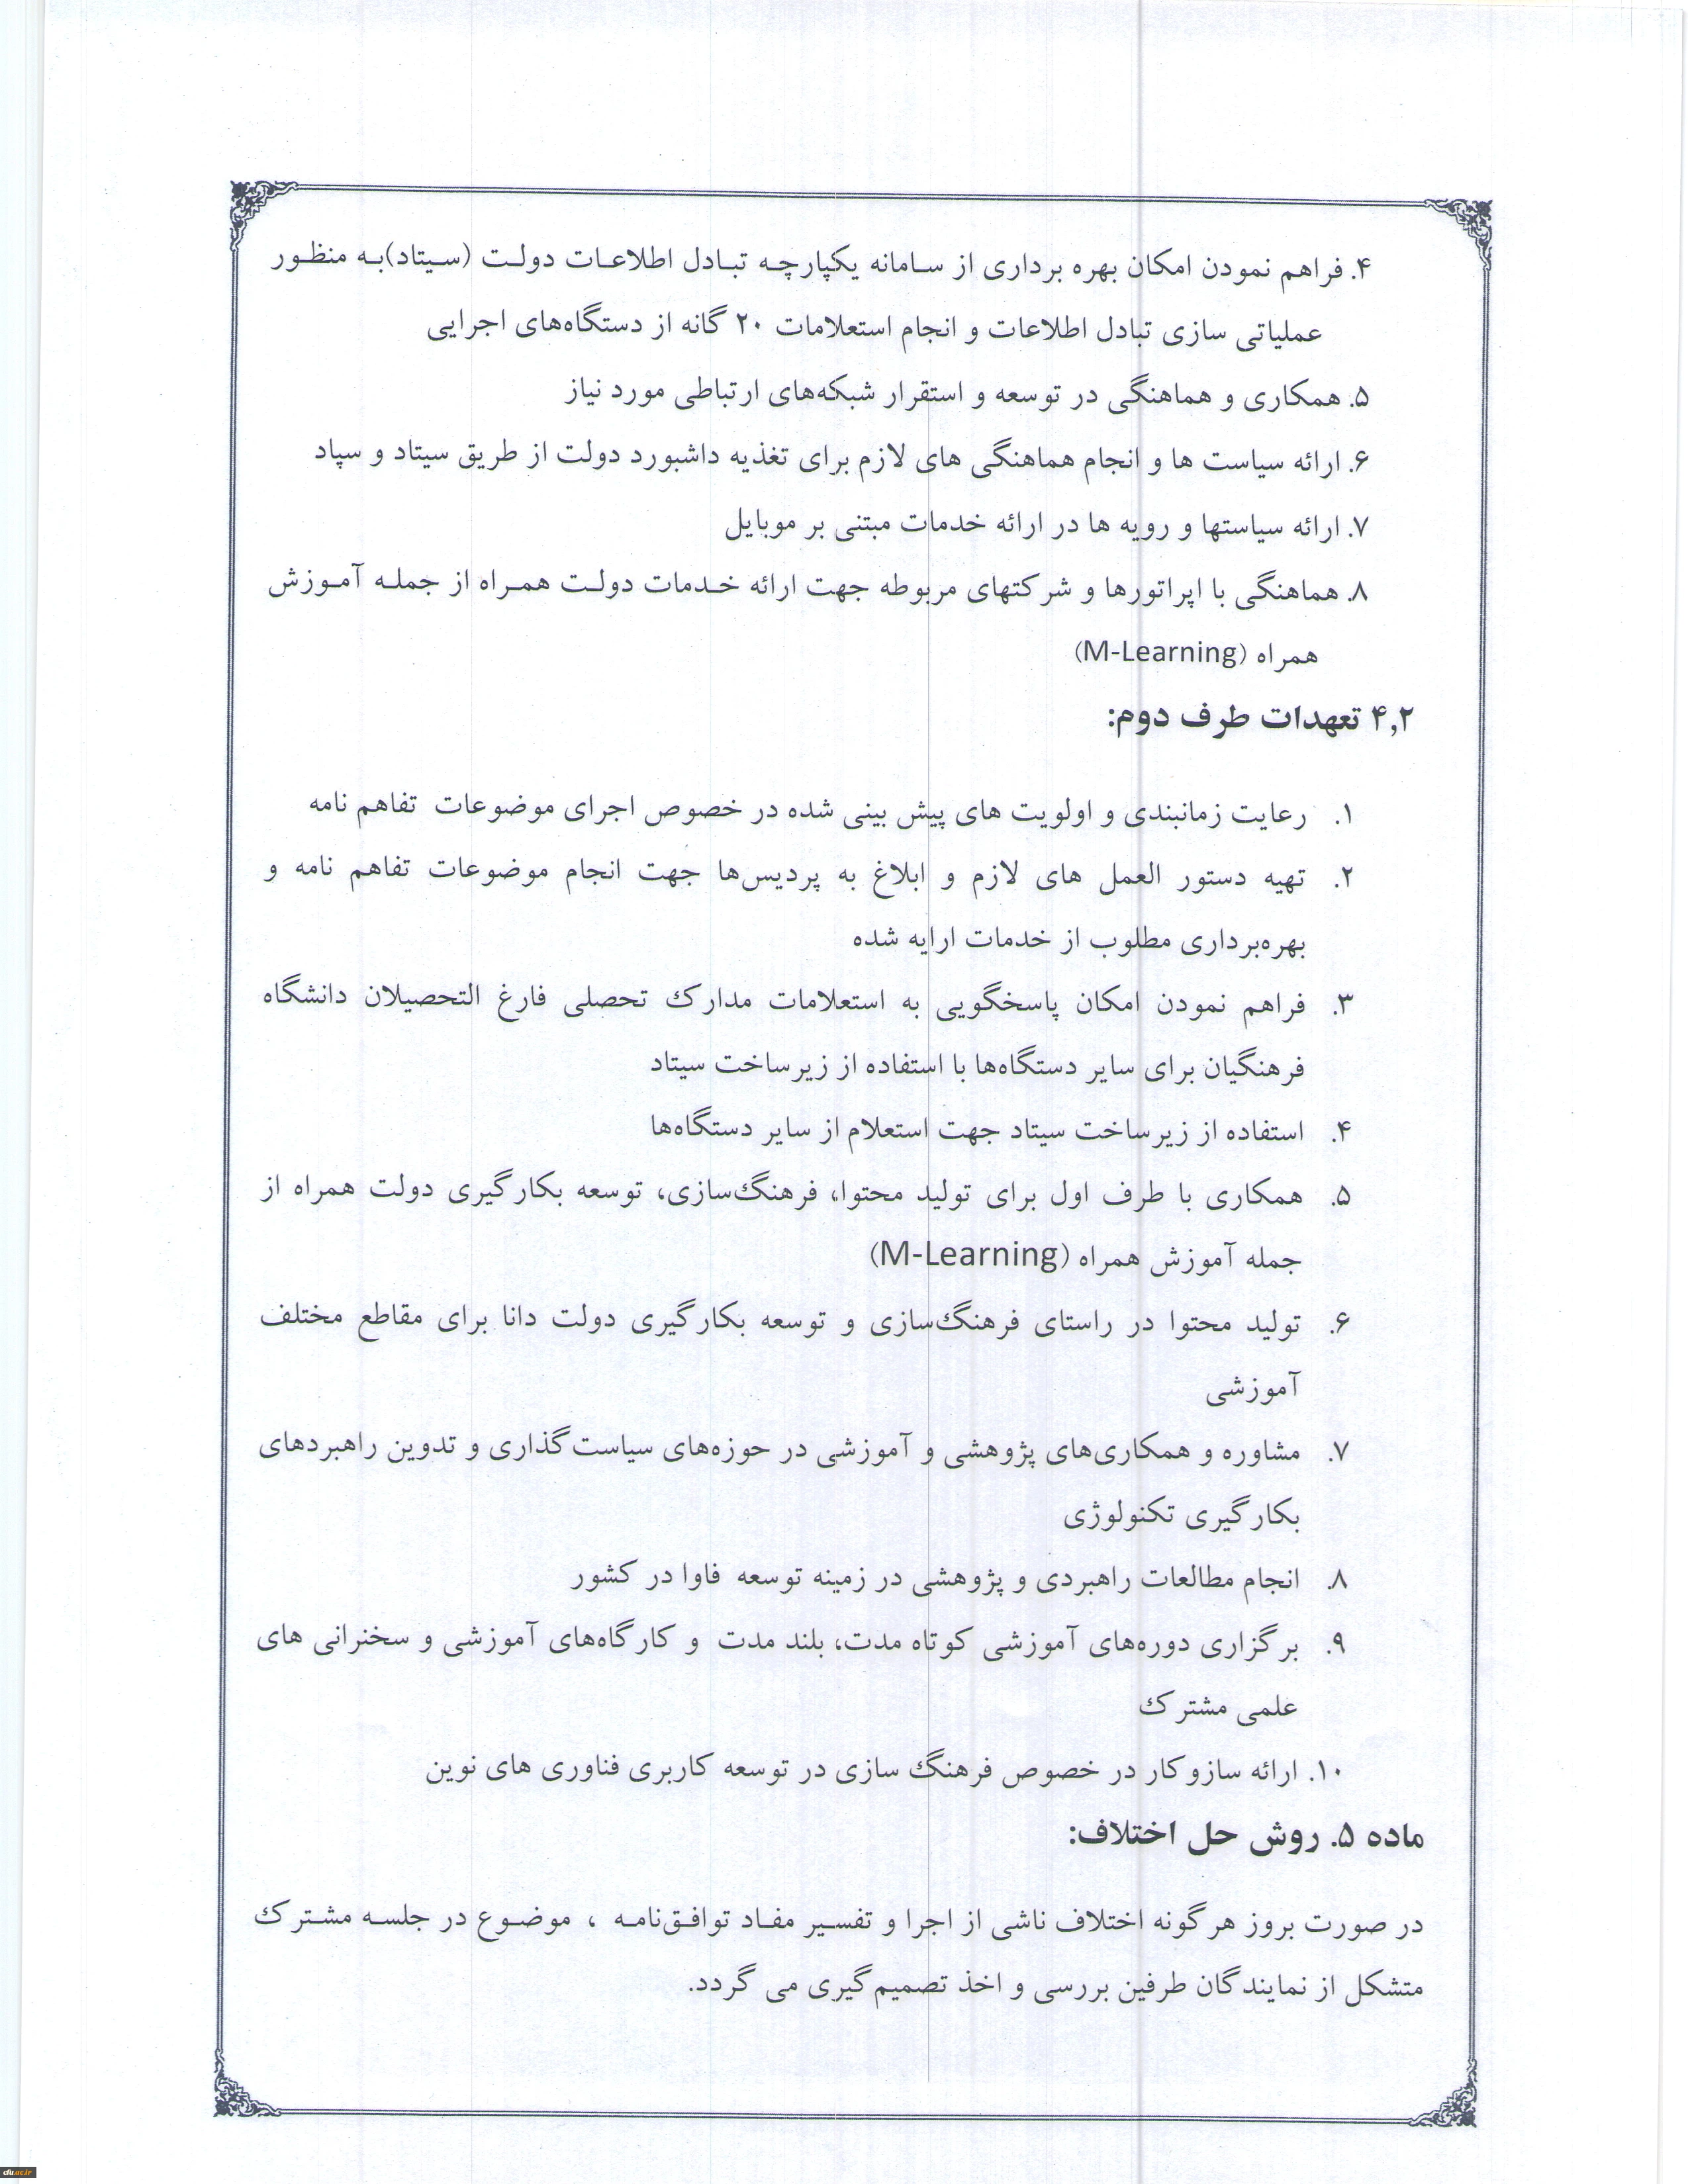 ۴. فراهم نمودن امکان بهره برداری از سامانه یکپارچه تبادل اطلاعات دولت (سیتاد)به منظور
عملیاتی سازی تبادل اطلاعات و انجام استعلامات ۲۰ گانه از دستگاه‌های اجرایی
۵. همکاری و هماهنگی در توسعه و استقرار شبکه‌های ارتباطی مورد نیاز
۶. ارائه سیاست ها و انجام هماهنگی های لازم برای تغذیه داشبورد دولت از طریق سیتاد و سپاد
۷. ارائه سیاستها و رویه ها در ارائه خدمات مبتنی بر موبایل
۸. هماهنگی با اپراتورها و شرکتهای مربوطه جهت ارائه خدمات دولت همراه از جمله آموزش
همراه (M-Learning)
۴,۲ تعهدات طرف دوم:
۱. رعایت زمانبندی و اولویت های پیش بینی شده در خصوص اجرای موضوعات تفاهم نامه
۲. تهیه دستور العمل های لازم و ابلاغ به پردیس‌ها جهت انجام موضوعات تفاهم نامه و
بهره‌برداری مطلوب از خدمات ارایه شده
۳. فراهم نمودن امکان پاسخگویی به استعلامات مدارک تحصلی فارغ التحصیلان دانشگاه
فرهنگیان برای سایر دستگاه‌ها با استفاده از زیرساخت سیتاد
۴. استفاده از زیرساخت سیتاد جهت استعلام از سایر دستگاه‌ها
۵. همکاری با طرف اول برای تولید محتوا، فرهنگ‌سازی، توسعه بکارگیری دولت همراه از
جمله آموزش همراه (M-Learning)
۶. تولید محتوا در راستای فرهنگ‌سازی و توسعه بکارگیری دولت دانا برای مقاطع مختلف
آموزشی
۷. مشاوره و همکاری‌های پژوهشی و آموزشی در حوزه‌های سیاست‌گذاری و تدوین راهبردهای
بکارگیری تکنولوژی
۸. انجام مطالعات راهبردی و پژوهشی در زمینه توسعه فاوا در کشور
۹. برگزاری دوره‌های آموزشی کوتاه مدت، بلند مدت و کارگاه‌های آموزشی و سخنرانی های
علمی مشترک
۱۰. ارائه سازوکار در خصوص فرهنگ سازی در توسعه کاربری فناوری های نوین
ماده ۵. روش حل اختلاف:
در صورت بروز هرگونه اختلاف ناشی از اجرا و تفسیر مفاد توافق‌نامه ، موضوع در جلسه مشترک
متشکل از نمایندگان طرفین بررسی و اخذ تصمیم‌گیری می گردد.
cfu.ac.ir